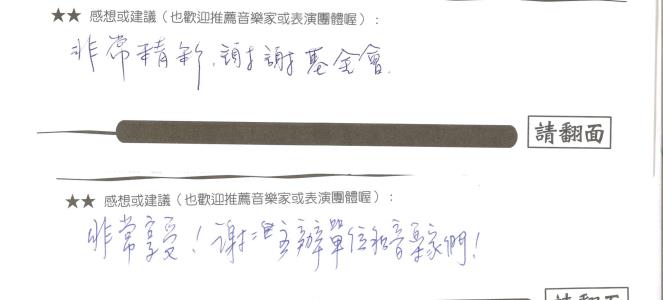 ★★ 感想或建議（也歡迎推薦音樂家或表演團體喔）：
非常精彩，謝謝基金會。
請翻面
★★ 感想或建議（也歡迎推薦音樂家或表演團體喔）：
非常享受！謝謝主辦單位和音樂家們！
請翻面